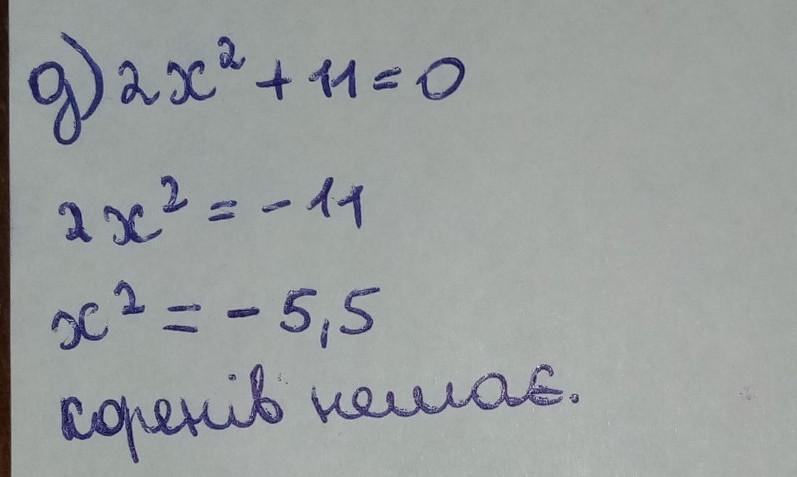 д) 2x² + 11 = 0
2x² = - 11
x² = - 5,5
коренів немає.